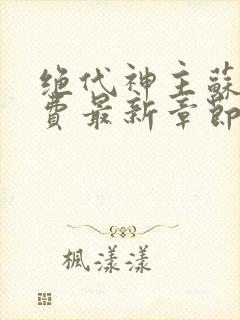 绝代神主蘇
費最新章節
楓漾漾